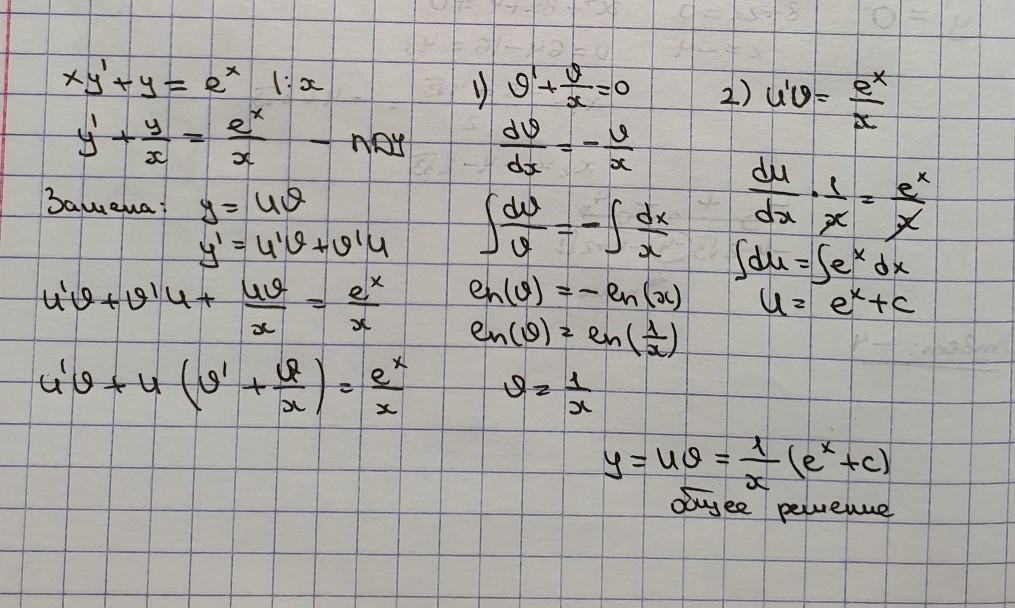 xy' + y = e^x |:x
y' + y/x = e^x/x – ЛДУ
Замена: y = uϑ
y' = u'ϑ + ϑ'u
u'ϑ + ϑ'u + uϑ/x = e^x/x
u'ϑ + u (ϑ' + ϑ/x) = e^x/x
1) ϑ' + ϑ/x = 0
dϑ/dx = - ϑ/x
∫ dϑ/ϑ = - ∫ dx/x
ln(ϑ) = - ln(x)
ln(ϑ) = ln(1/x)
ϑ = 1/x
2) u'ϑ = e^x/x
du/dx · 1/x = e^x/x
∫du = ∫e^x dx
u = e^x + c
y = uϑ = 1/x (e^x + c)
общее решение